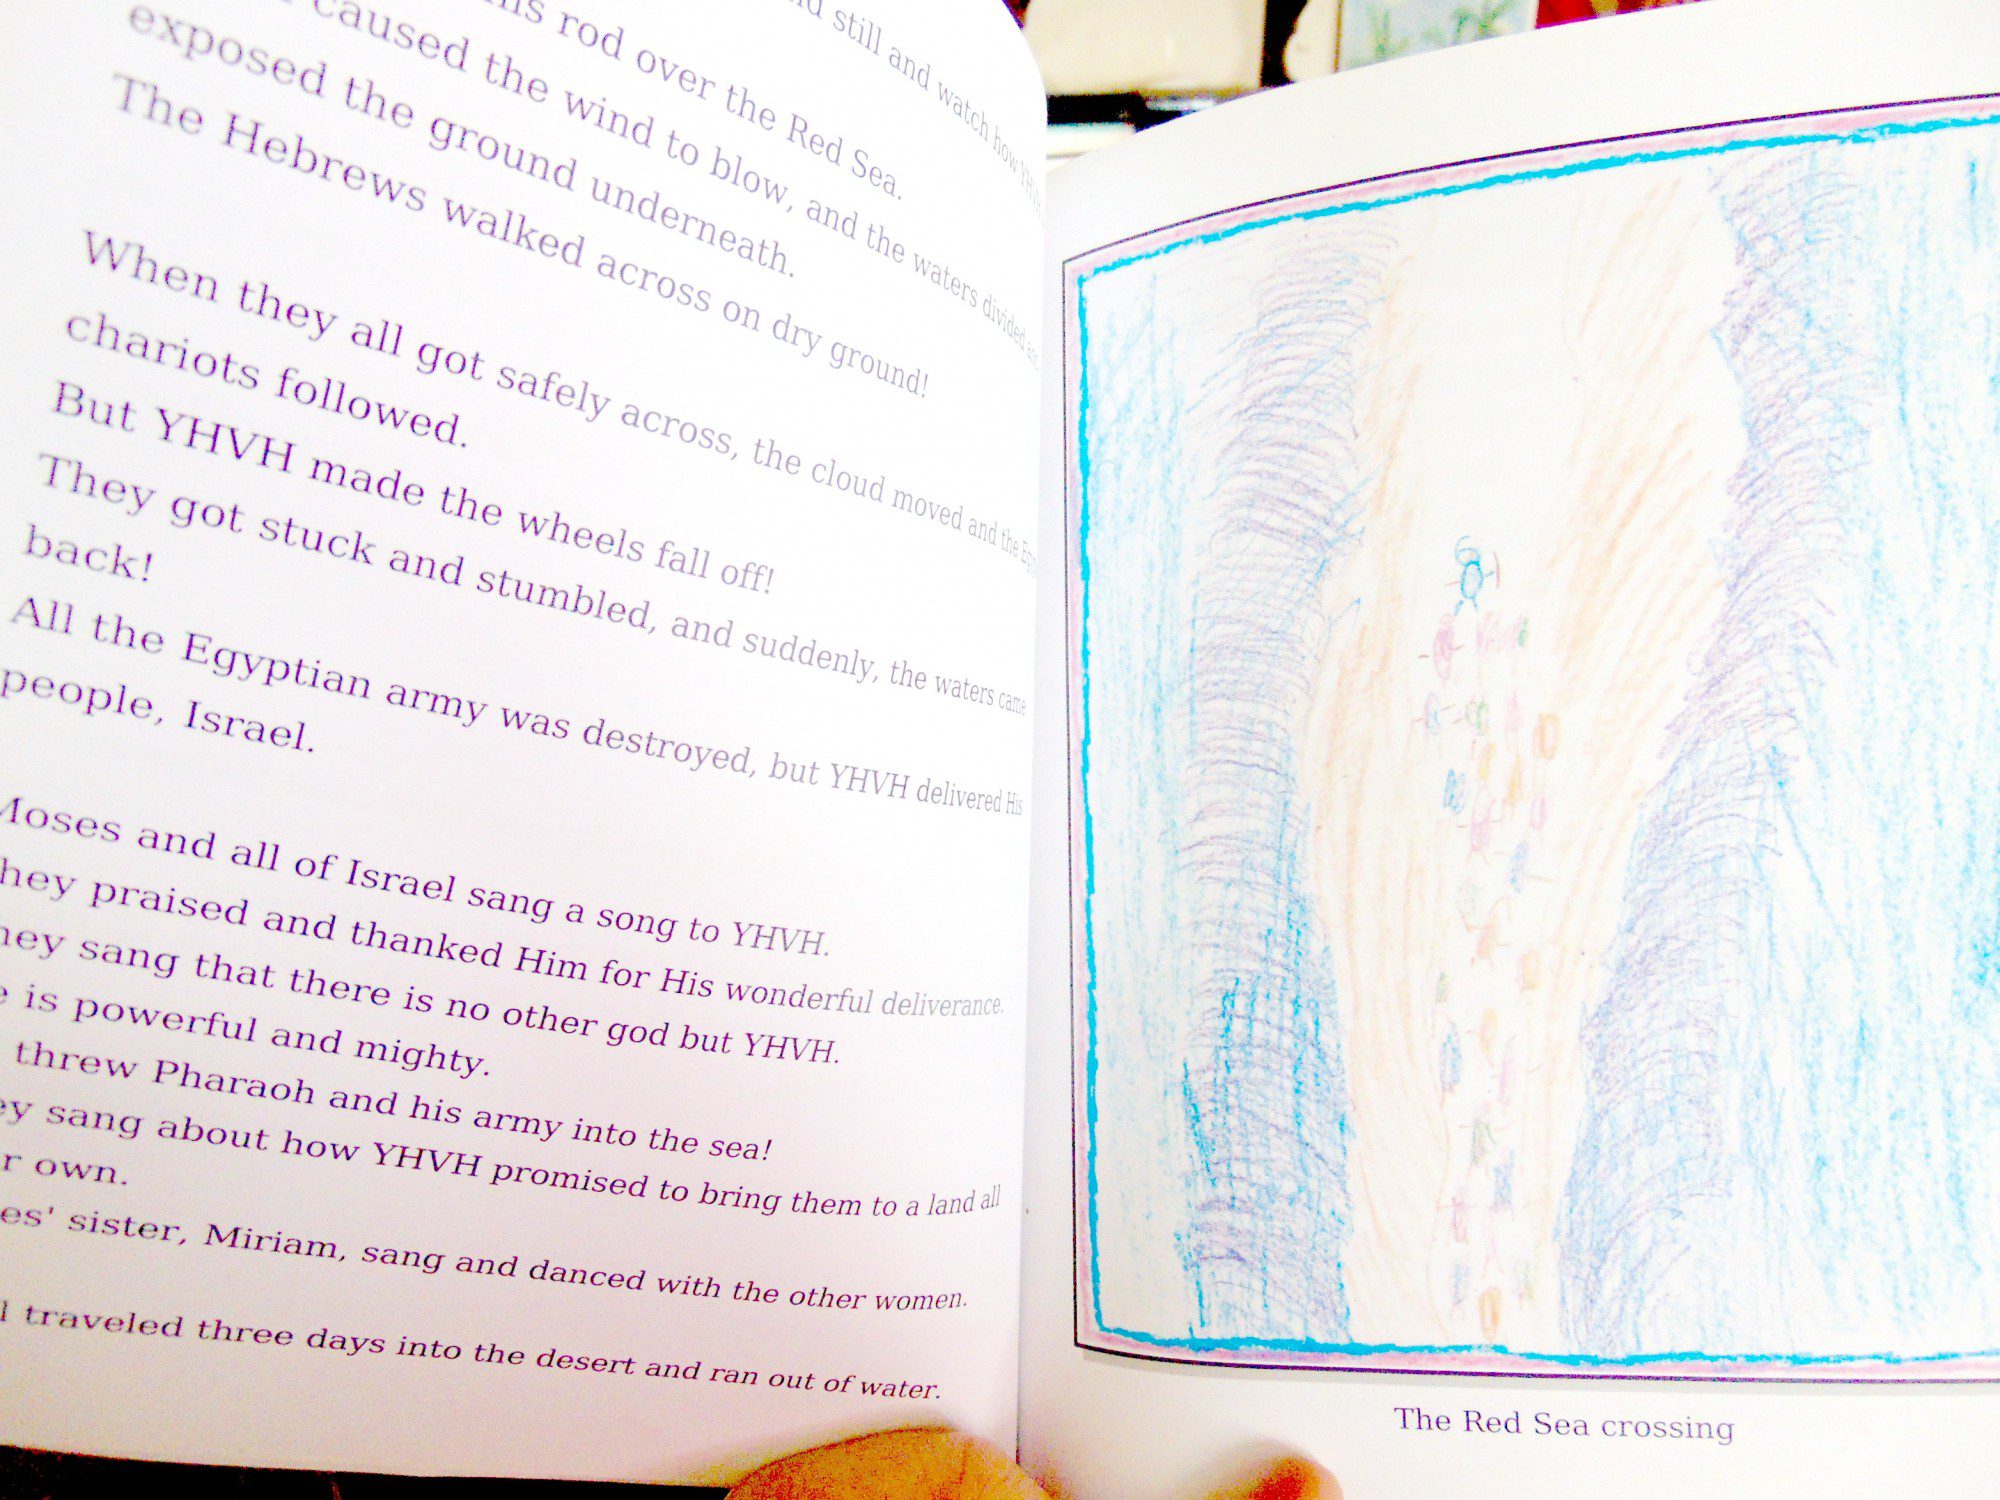 still and watch how
his rod over the Red Sea.
caused the wind to blow, and the waters divided and
exposed the ground underneath.
The Hebrews walked across on dry ground!
When they all got safely across, the cloud moved and the
chariots followed.
But YHVH made the wheels fall off!
They got stuck and stumbled, and suddenly, the waters came
back!
All the Egyptian army was destroyed, but YHVH delivered His
people, Israel.
Moses and all of Israel sang a song to YHVH.
hey praised and thanked Him for His wonderful deliverance.
hey sang that there is no other god but YHVH.
e is powerful and mighty.
threw Pharaoh and his army into the sea!
ey sang about how YHVH promised to bring them to a land all
r own.
es' sister, Miriam, sang and danced with the other women.
l traveled three days into the desert and ran out of water.
The Red Sea crossing